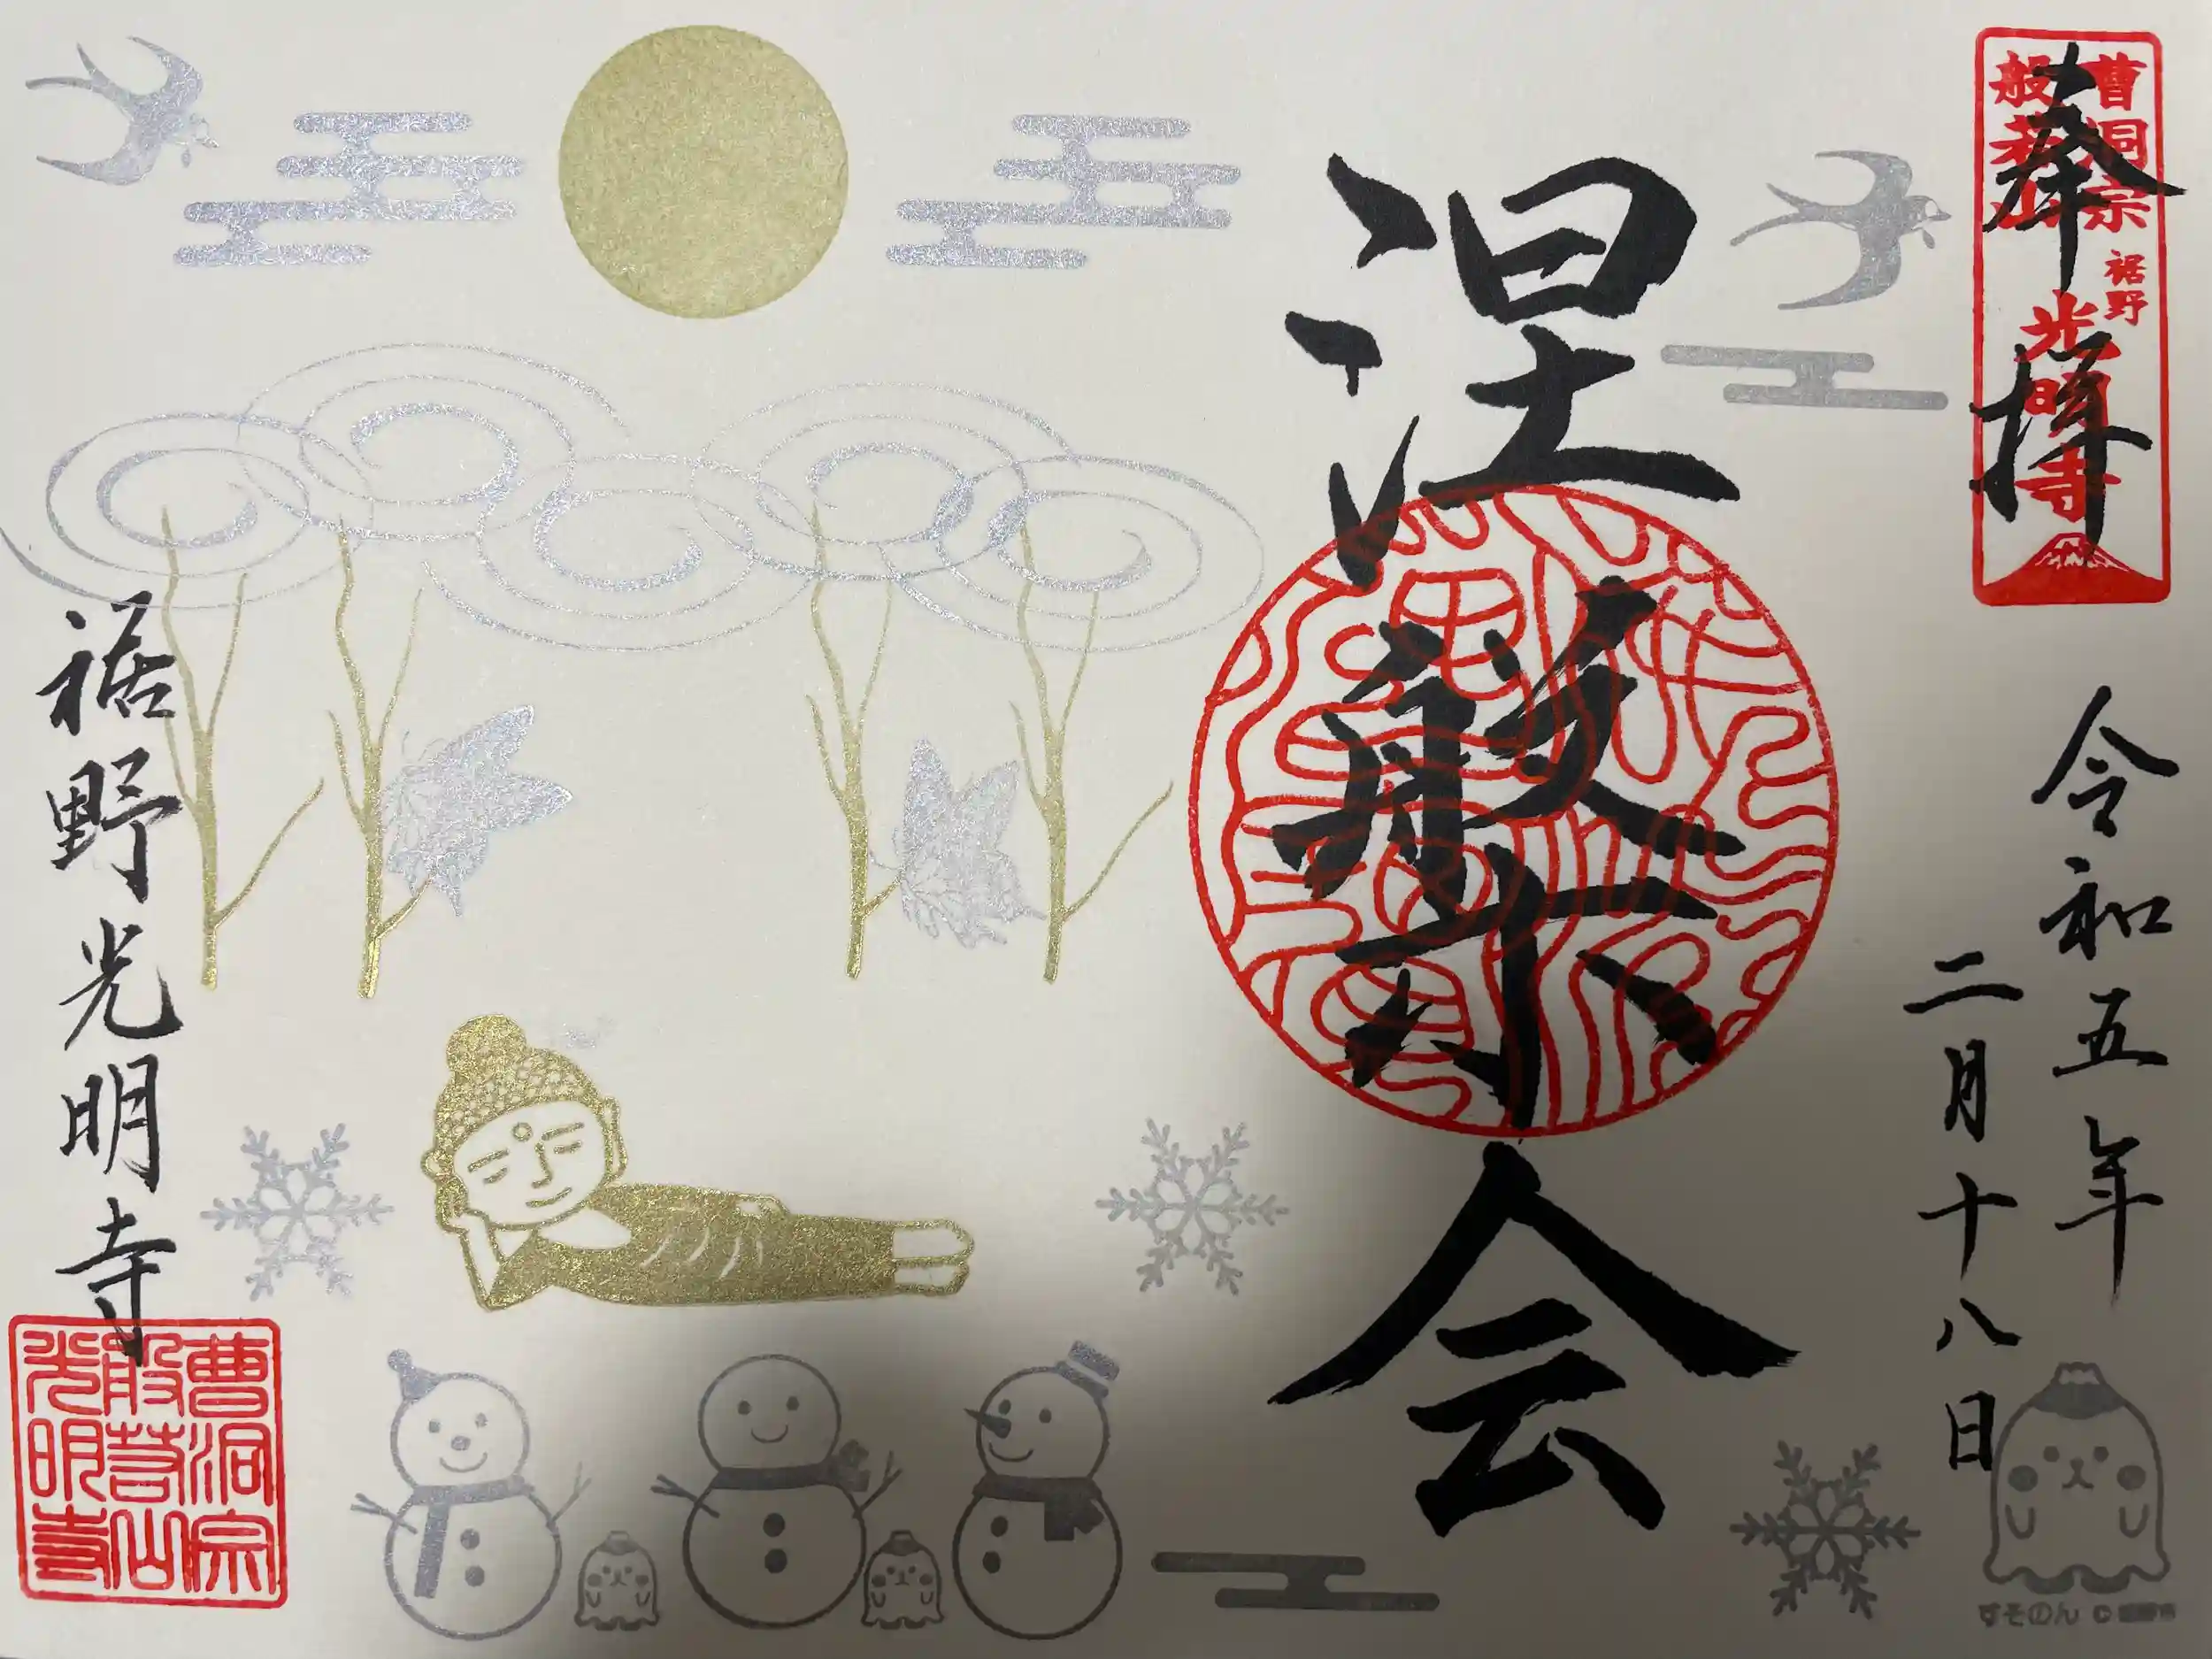 奉拝
曹洞宗
般若山
裾野
光明寺
令和五年
二月十八日
涅般木会
裾野光明寺
曹洞宗
般若山
光明寺
すそのん ©